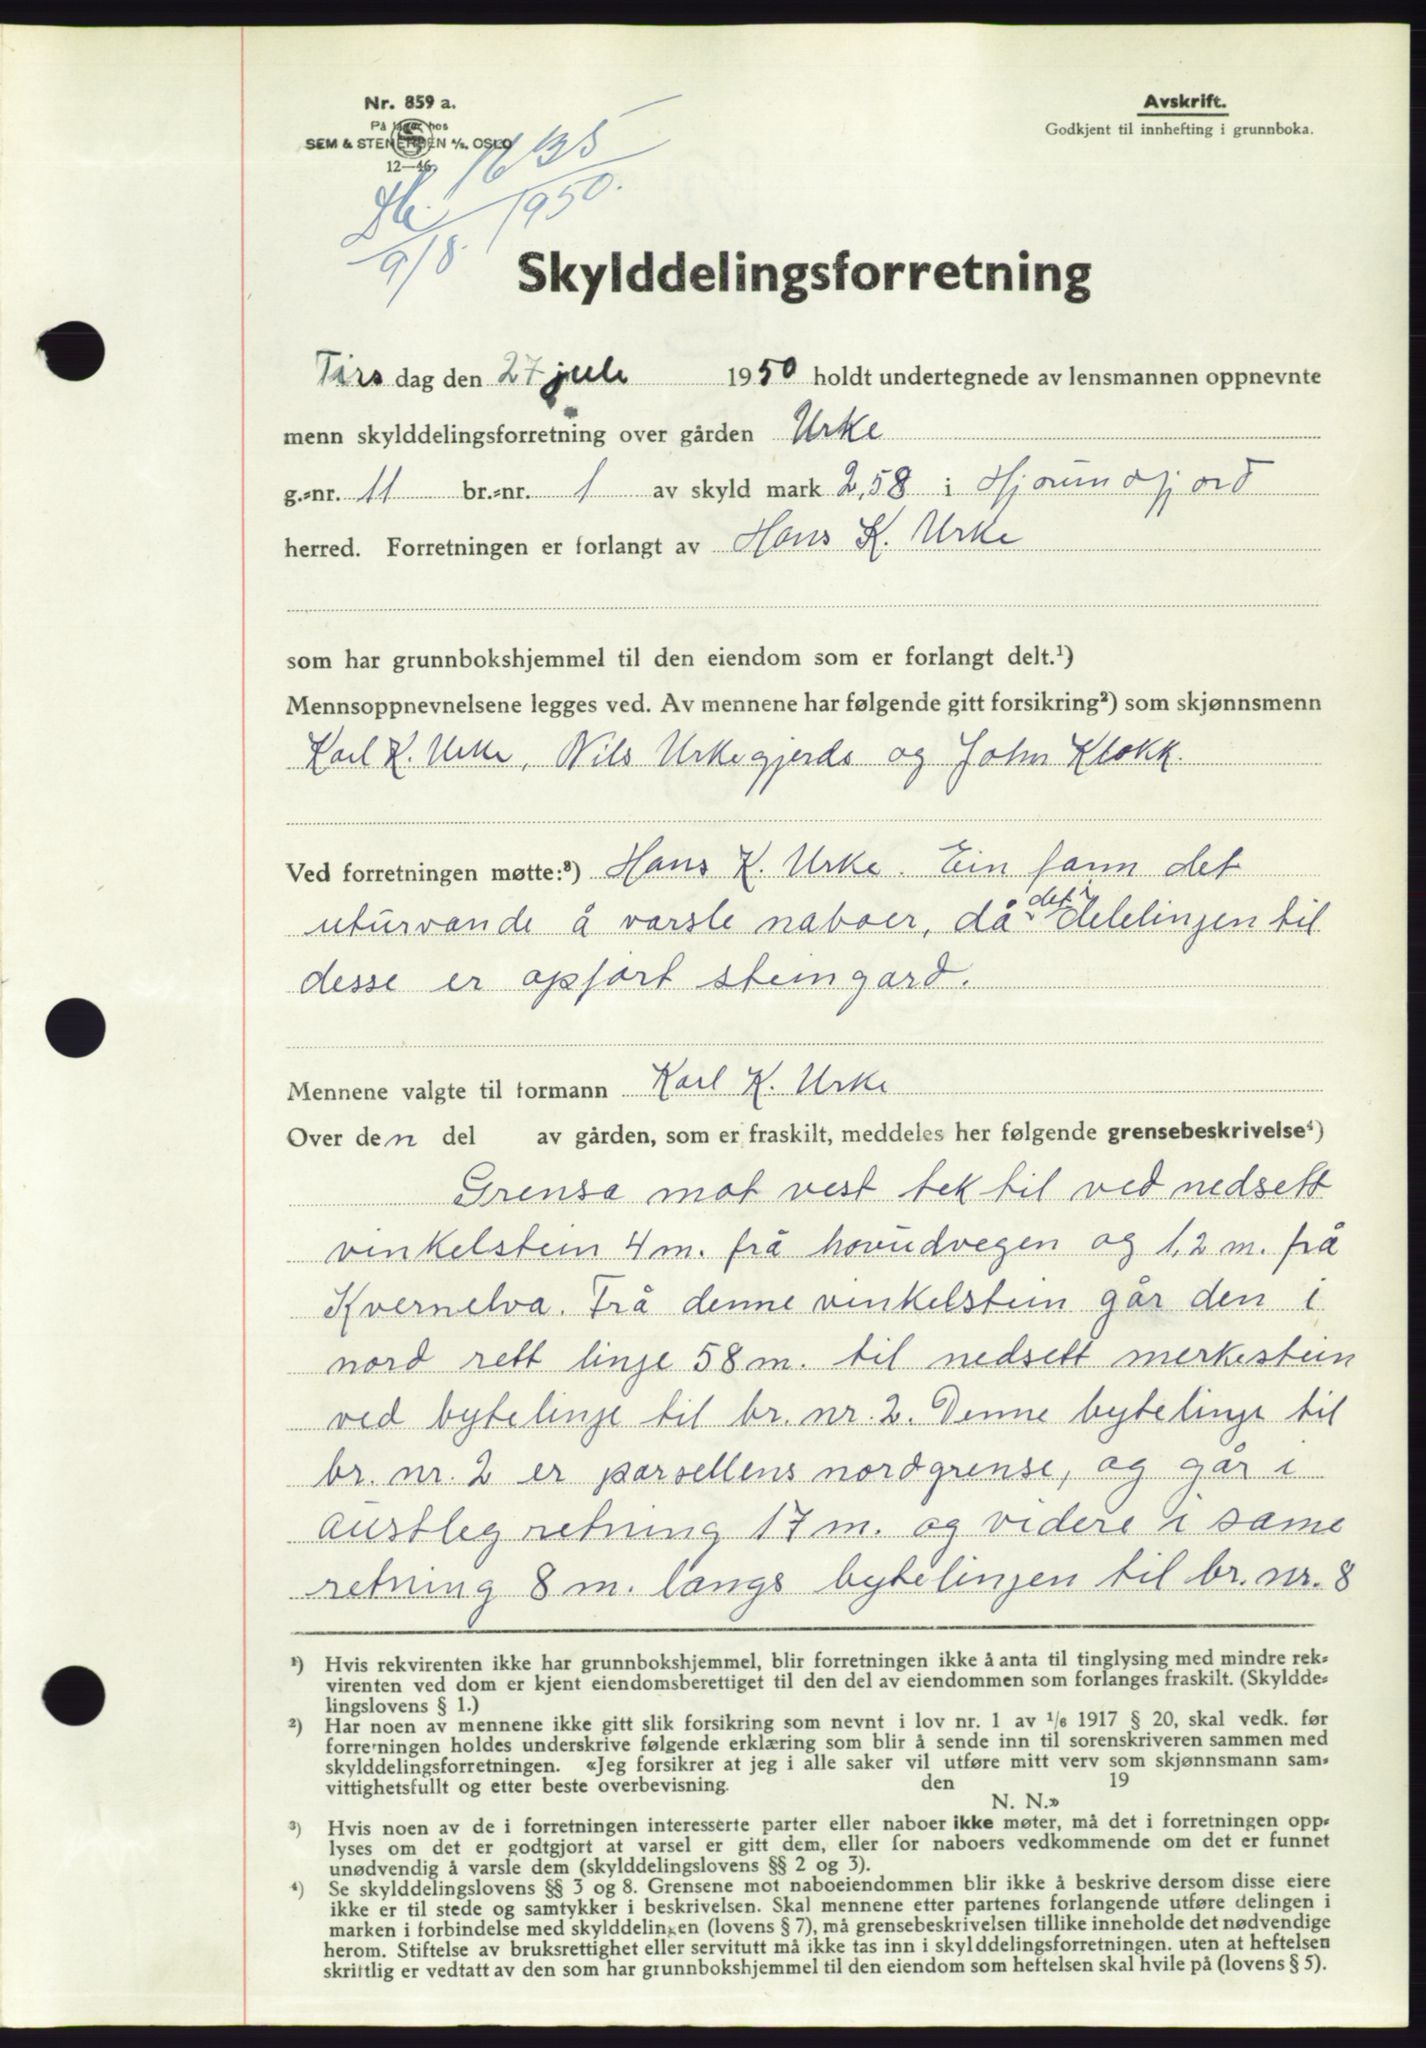 Nr. 859 a.
På lager hos
SEM & STENERSEN A/S, OSLO
12—46.
Avskrift.
Godkjent til innhefting i grunnboka.
Db. 1635/1950.
9/8
Skylddelingsforretning
Tirsdag den 27 juli 1950 holdt undertegnede av lensmannen oppnevnte
menn skylddelingsforretning over gården Urke
g.-nr. 11 br.-nr. 1 av skyld mark 2,58 i Hjørundfjord
herred. Forretningen er forlangt av Hans K. Urke
som har grunnbokshjemmel til den eiendom som er forlangt delt.¹)
Mennsoppnevnelsene legges ved. Av mennene har følgende gitt forsikring²) som skjønnsmenn
Karl K. Urke, Nils Urkegjerde og John Klokk.
Ved forretningen møtte:³) Hans K. Urke. Ein fann det
uturvande å varsle naboer, då det i delelinjen til
desse er opført steingard.
Mennene valgte til formann Karl K. Urke
Over den del av gården, som er fraskilt, meddeles her følgende grensebeskrivelse⁴)
Grensa mot vest tek til ved nedsett
vinkelstein 4 m. frå hovudvegen og 1,2 m. frå
Kvernelva. Frå denne vinkelstein går den i
nord rett linje 58 m. til nedsett merkestein
ved bytelinje til br. nr. 2. Denne bytelinje til
br. nr. 2 er parsellens nordgrense, og går i
austleg retning 17 m. og videre i same
retning 8 m. langs bytelinjen til br. nr. 8
¹) Hvis rekvirenten ikke har grunnbokshjemmel, blir forretningen ikke å anta til tinglysing med mindre rek-
virenten ved dom er kjent eiendomsberettiget til den del av eiendommen som forlanges fraskilt. (Skyldde-
lingslovens § 1.)
²) Har noen av mennene ikke gitt slik forsikring som nevnt i lov nr. 1 av 1/6 1917 § 20, skal vedk. før
forretningen holdes underskrive følgende erklæring som blir å sende inn til sorenskriveren sammen med
skylddelingsforretningen. «Jeg forsikrer at jeg i alle saker vil utføre mitt verv som skjønnsmann sam-
vittighetsfullt og etter beste overbevisning. den 19
N. N.»
³) Hvis noen av de i forretningen interesserte parter eller naboer ikke møter, må det i forretningen opp-
lyses om det er godtgjort at varsel er gitt dem, eller for naboers vedkommende om det er funnet
unødvendig å varsle dem (skylddelingslovens §§ 2 og 3).
⁴) Se skylddelingslovens §§ 3 og 8. Grensene mot naboeiendommen blir ikke å beskrive dersom disse eiere
ikke er til stede og samtykker i beskrivelsen. Skal mennene etter partenes forlangende utføre delingen i
marken i forbindelse med skylddelingen (lovens § 7), må grensebeskrivelsen tillike inneholde det nødvendige
herom. Stiftelse av bruksrettighet eller servitutt må ikke tas inn i skylddelingsforretningen. uten at heftelsen
skriftlig er vedtatt av den som har grunnbokshjemmel til den eiendom som heftelsen skal hvile på (lovens § 5).